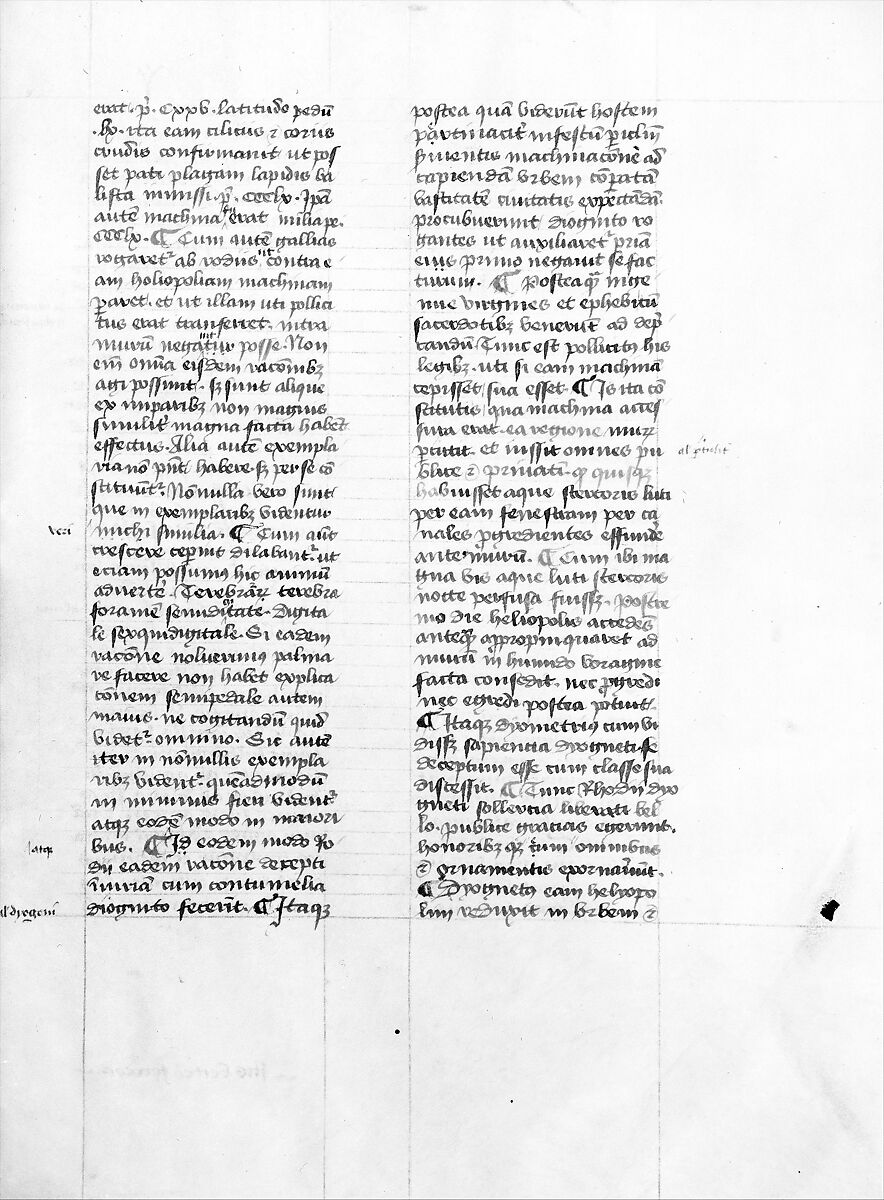 erat. p̄. Cxxv. latitudo pedū
.lx. ita eam ciliciis ⁊ coriis
crudis confirmauit ut pos
set pati plagam lapidis ba
lista inmissi. p̄. CCClx. Ipā
autē machina erat milia pe.
CCClx. ¶ Cum autē gallias
rogaret᷑ ab rodiis ut contra e
am holiopoliam machinam
ꝑaret. et ut illam uti pollici
tus erat tranferret. intra
murū negatiur posse. Non
em̄ om̄ia eisdem rac̄onibꝫ
agi possunt. sꝫ sunt alique
ex imparibꝫ non magnis
similit̄ magna facta habēt
effectus. Alia autē exempla
ria nō pn̄t habere sꝫ per se cō
stituūt᷑. Nōnulla vero sunt
que in exemplaribꝫ videntur
veri
michi similia. ¶ Cum aūt
crescere ceperint dilabant᷑. ut
eciam possumꝰ hic animū
aduertē. Terebrāt᷑ terebra
foramē semidigitate. digita
le sexquidigitale. Si eadem
rac̄one noluerimꝰ palma
re facere non habet explica
c̄onem semipedale autem
maius. ne cogitandū quid
videt᷑ omnino. Sic autē
iter in nōnullis exempla
ribꝫ vident᷑. quēadmodū
in minimis fieri vident᷑
atqꝫ eodē modo in maiori
bus. ¶ Id eodem modo Ro
iatqꝫ
dii eadem rac̄one decepti
iniuriā cum contumelia
diognito fecerūt. ¶ Itaqꝫ
al dyogeni
postea quā viderūt hostem
ꝑtinacit̄ infestū ꝑiclm̄
s̄uientis machinac̄onē ad
capiendā vrbem cōꝑatā
vastitatē ciuitatis expectādā.
procubuerunt diognito ro
gantes ut auxiliaret᷑ priā
eius primo negauit se fac
turum. ¶ Posteaqꝫ inge
nue virgines et ephebi cū
sacerdotibꝫ venerūt ad dep̄
candū. Tunc est pollicitꝰ his
legibꝫ. uti si eam machinā
cepissēt sua esset. ¶ Is ita cō
stitutis qua machina acces
sura erat. ea regione murꝝ
ꝑtutit. et iussit omnes pu
blice ⁊ priuatī. qꝫ quisqꝫ
habuisset aque stercoris luti
per eam fenestram per ca
nales ꝓgredientes effundē
ante murū. ¶ Cum ibi ma
gna vis aque luti stercoris
nocte perfusa fuissꝫ. Postre
mo die heliopolis accedēs
anteqꝫ appropinquaret ad
murū in humido voragine
facta consedit. nec ꝓgredi
nec egredi postea potuit.
¶ Itaqꝫ dyometriꝰ cum vi
dissꝫ sapiencia dyogneti se
deceptum esse cum classe sua
discessit. ¶ Tunc Rhodii dyo
gneti sollercia liberati bel
lo. publice gracias egerunt.
honoribꝫ qꝫ eum omnibus
⁊ ornamentis exornauūt.
¶ Dyognetꝰ eam helyopo
lim reduxit in vrbem ⁊